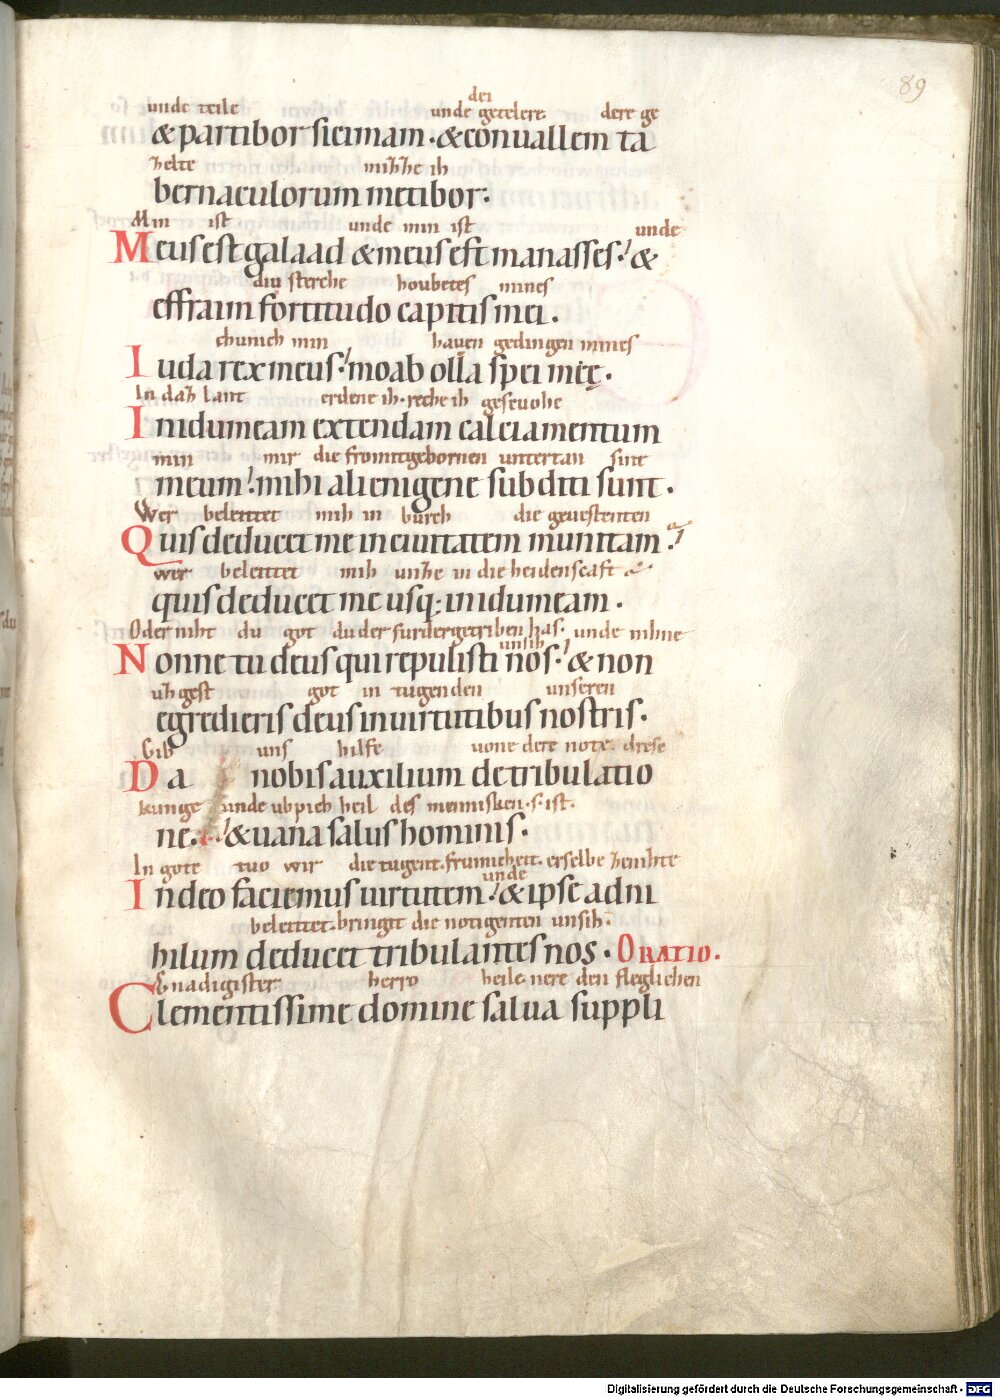 89
dei
unde teile unde getelere. dere ge
& partibor sicimam · & conuallem ta
zelte mizze ih
bernaculorum metibor:
Min ist unde min ist unde
Meus est galaad & meus est manasses: &
diu sterche houbetes mines
effraim fortitudo capitis mei.
chunich min haven gedingen mines
Iuda rex meus: moab olla spei meę.
In daz lant erdene ih. reche ih gescuohe
In idumeam extendam calciamentum
min mir die fromitgebornen untertan sint
meum! mihi alienigene subditi sunt.
Wer beleittet mih in burch die geuestenten
Quis deducet me in ciuitatem munitam?
wer beleittet mih unze in die heidenscaft
quis deducet me usq; in idumeam.
Oder niht du got du der furdergetriben has. unde nihne
unsih
Nonne tu deus qui repulisti nos: & non
uz gest got in tugenden unseren
egredieris deus in uirtutibus nostris.
Gib uns hilfe uone dere note. drese
Da nobis auxilium de tribulatio
kunge unde uppich heil des mennisken .s. ist.
ne. & uana salus hominis.
In gote tuo wir die tugent. frumicheit. er selbe zenihte
unde
In deo faciemus uirtutem: & ipse adni
beleittet. bringit die notigenten unsih.
hilum deducet tribulantes nos. ORATIO.
Gnadigister herro heile. nere den fleglichen
Clementissime domine salua suppli
Digitalisierung gefördert durch die Deutsche Forschungsgemeinschaft - DFG